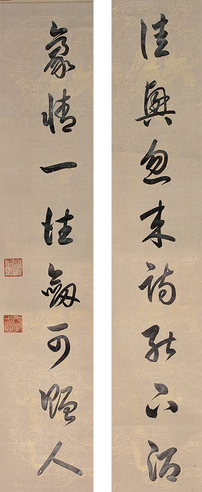 佳興忽來詩能下酒
豪情一往劍可贈人